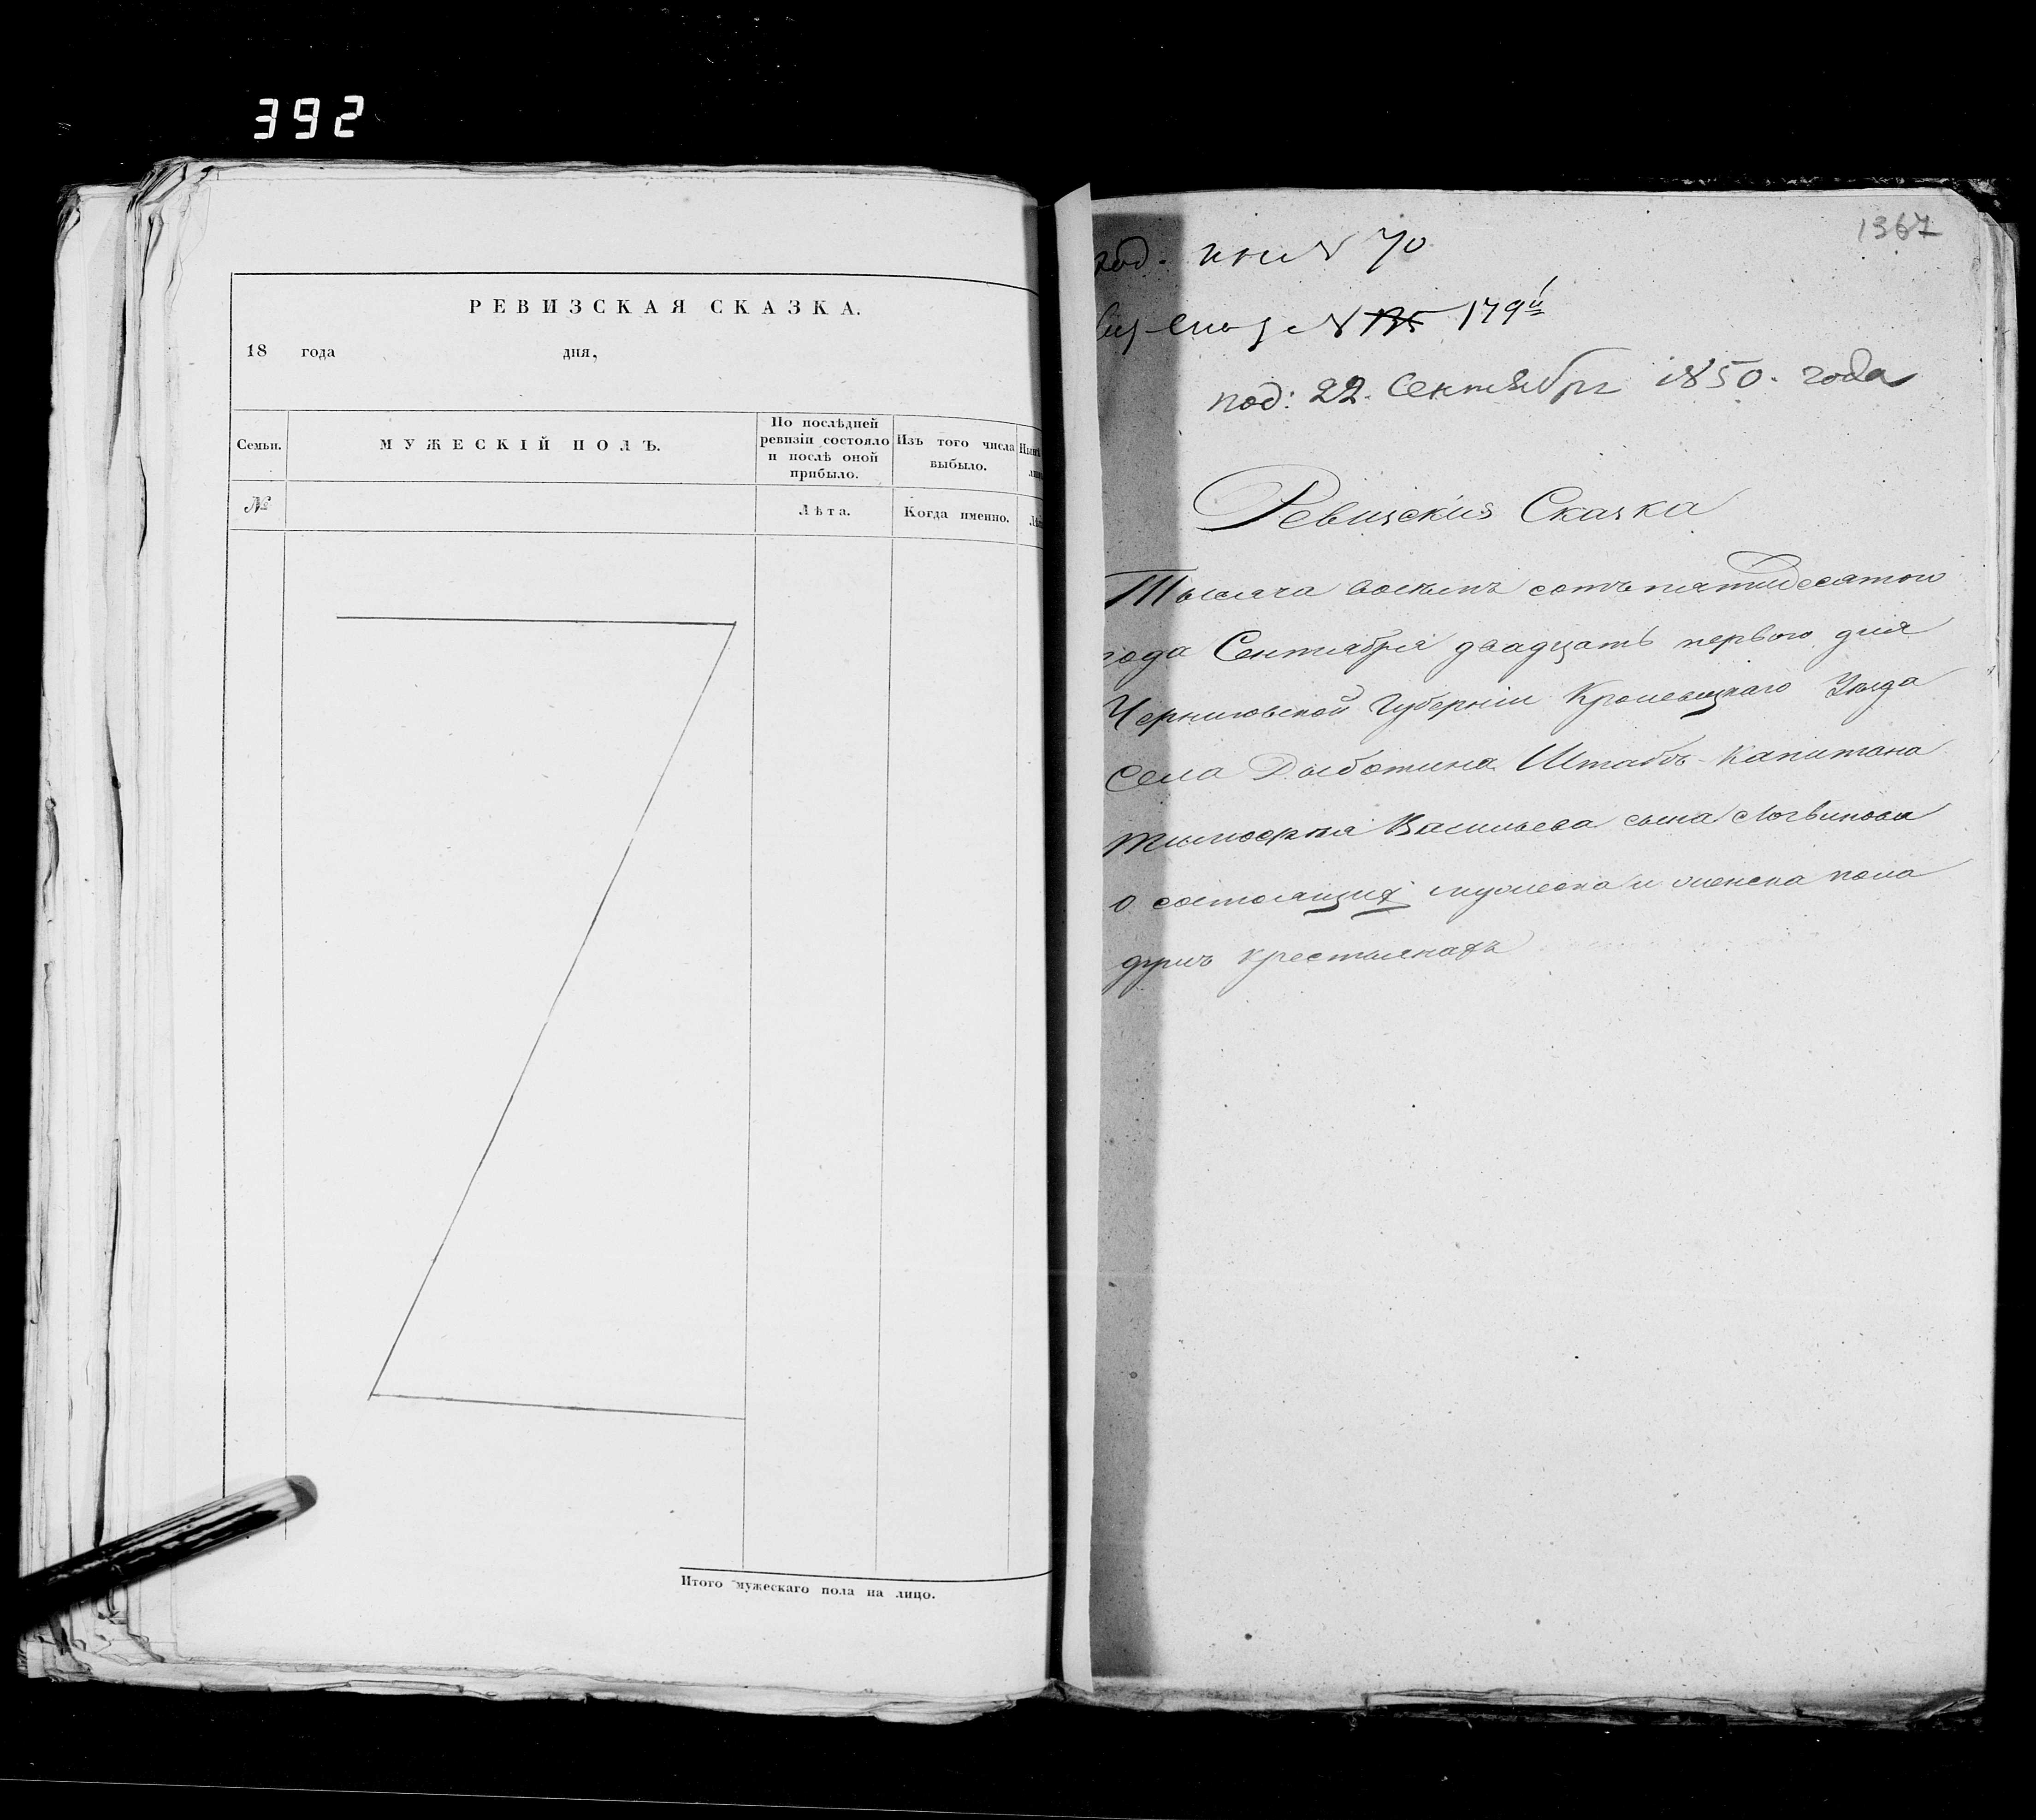 392
РЕВИЗСКАЯ СКАЗКА.
18 года дня,
Семьи.
МУЖЕСКІЙ ПОЛЪ.
По послѣдней
ревизіи состояло
и послѣ оной
прибыло.
Изъ того числа
выбыло.
№
Лѣта.
Когда именно.
Итого мужескаго пола на лицо.
1367
под. 70
№ 135 179й
под: 22. Сентября 1850. года
Ревизския Сказка
Тысяча восемь сотъ пятидесятого
года Сентября двадцать первого дня
Черниговской Губерніи Кролевецкаго Уезда
Села Дыботина Штабъ-Капитана
Тимоѳея Васильева сына Логвинова
о состоящих мужеска и женска пола
душъ крестьянахъ